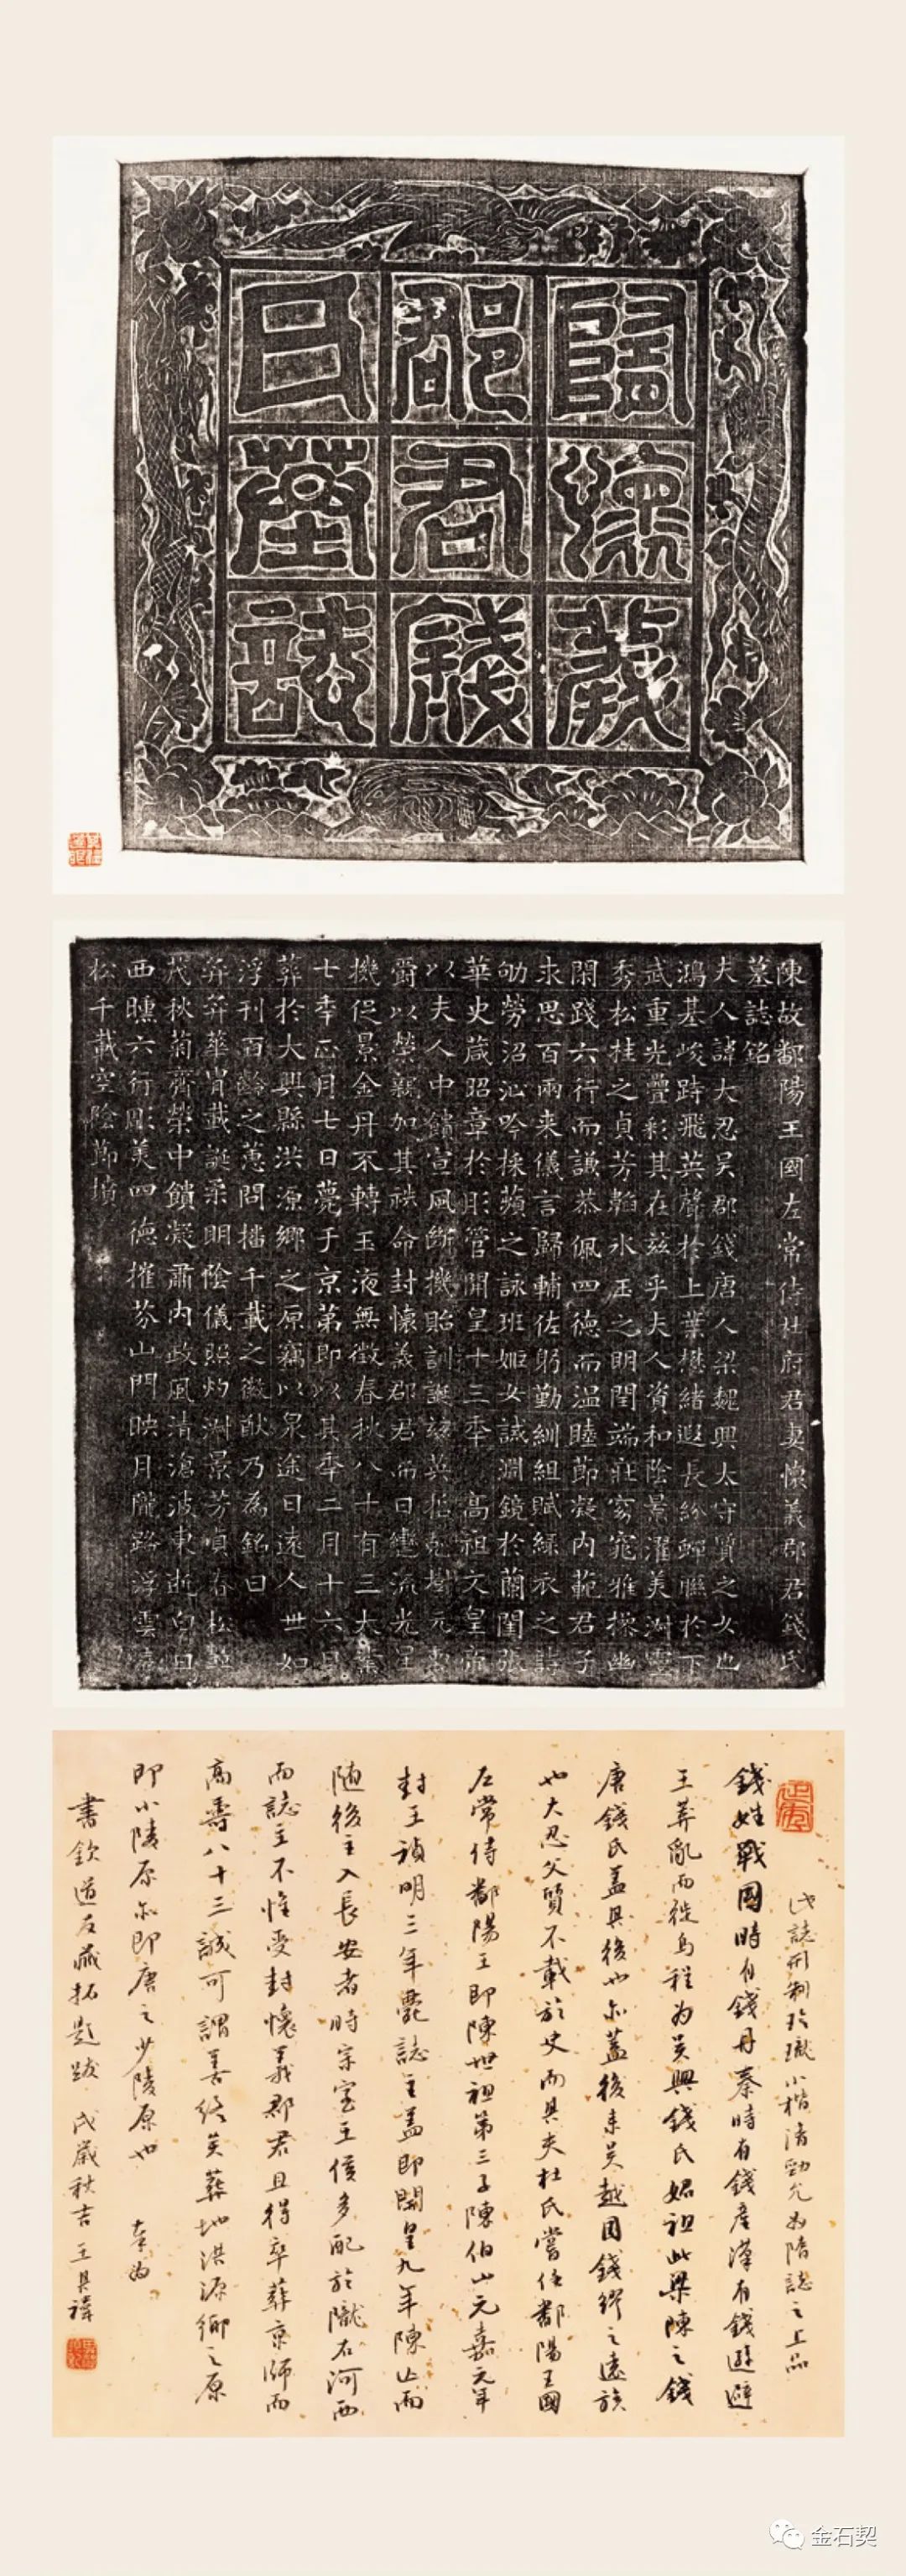 隋懷義
郡君錢
氏墓誌
陳故鄱陽王國左常侍杜府君妻懷義郡君錢氏
墓誌銘
夫人諱大忍吳郡錢唐人梁魏興太守質之女也
鴻基峻跱飛英聲於上葉懋緒遐長紛蟬聯於下
武重光疊彩其在茲乎夫人資和陰景濯美淵靈
秀松桂之貞芳韜水玉之明閏端莊窈窕雅操幽
閑踐六行而謙恭佩四德而溫睦節凝內範君子
求思百兩来儀言歸輔佐躬勤紃組賦綠衣之詩
劬勞沼沚吟採蘋之詠班姬女誡淵鏡於蘭閨張
華史葴昭章於彤管開皇十三年高祖文皇帝
以夫人中饋宣風斷機貽訓誕茲英哲剋樹元
爵以榮親加其袟命封懷義郡君而日轡流光星
機促景金丹不轉玉液無徵春秋八十有三大業
七年正月七日薨于京第即以其年二月十六日
葬於大興縣洪源鄉之原竊以泉途日遠人世如
浮刊百齡之蕙問播千載之徽猷乃為銘曰
弈弈華胄載誕柔明陰儀照灼淵景芳嗔春松
茂秋菊齊榮中饋凝肅內政風清滄波東逝白日
西曛六行彫美四德摧芬山門映月隴路浮雲
松千載空陰節墳
此誌形制玲瓏小楷清勁允為隋誌之上品
錢姓戰國時有錢丹秦時有錢産漢有錢遜避
王莽亂而徙烏程為吳興錢氏始祖此梁陳之錢
唐錢氏蓋其後也亦蓋後來吳越國錢鏐之遠族
也大忍父質不載於史而其夫杜氏嘗任鄱陽王國
左常侍鄱陽王即陳世祖第三子陳伯山元嘉元年
封王禎明三年薨誌主蓋即開皇九年陳亡而
隨後主入長安者時宗室王侯多配於隴右河西
而誌主不惟受封懷義郡君且得卒葬京師而
高壽八十三誠可謂善終矣葬地洪源鄉之原
即小陵原亦即唐之少陵原也 奉為
書欽道友藏拓題跋 戊歲秋吉王其禕
金石契